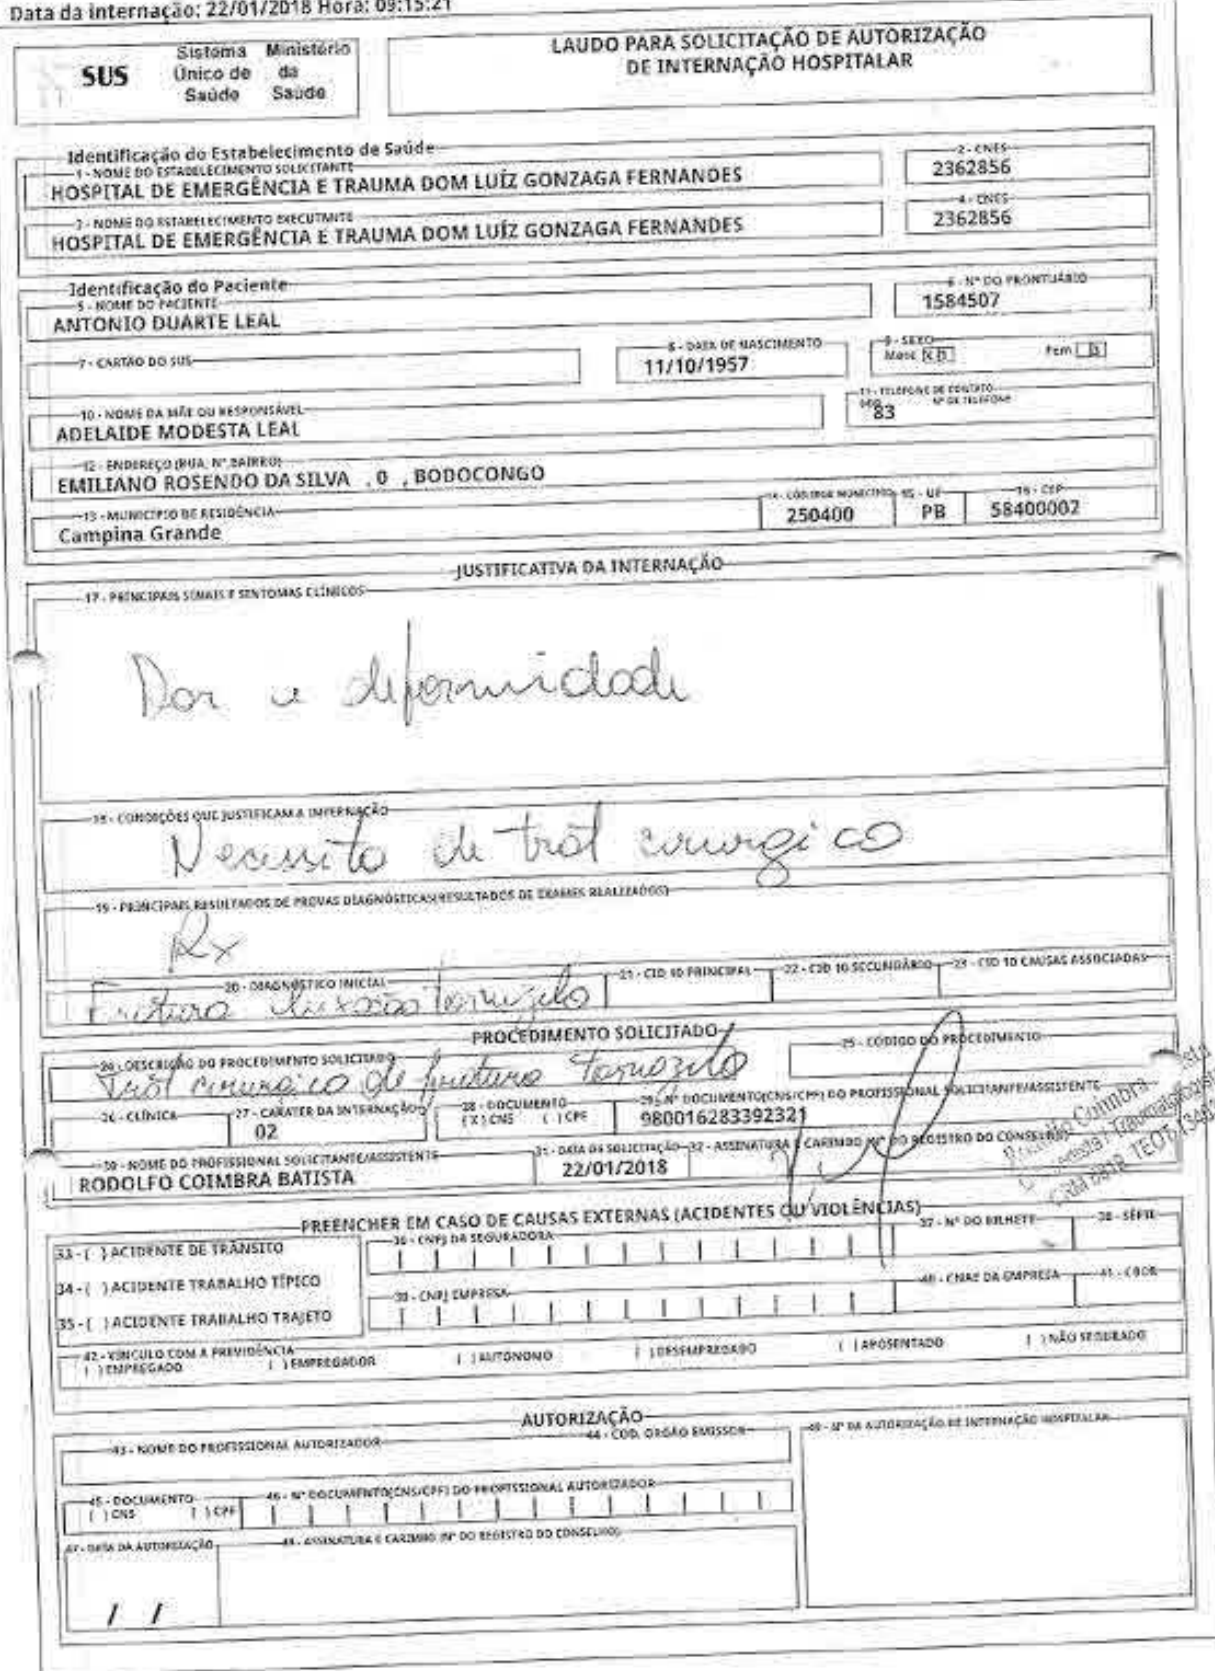 Data da internação: 22/01/2018 Hora: 09:15:21
SUS
Sistema Ministério
Único de da
Saúde Saúde
LAUDO PARA SOLICITAÇÃO DE AUTORIZAÇÃO
DE INTERNAÇÃO HOSPITALAR
Identificação do Estabelecimento de Saúde
1 - NOME DO ESTABELECIMENTO SOLICITANTE
2 - CNES
HOSPITAL DE EMERGÊNCIA E TRAUMA DOM LUÍZ GONZAGA FERNANDES
2362856
NOME DO ESTABELECIMENTO EXECUTANTE
4 - CNES
HOSPITAL DE EMERGÊNCIA E TRAUMA DOM LUÍZ GONZAGA FERNANDES
2362856
Identificação do Paciente
5 - NOME DO PACIENTE
6 - Nº DO PRONTUÁRIO
ANTONIO DUARTE LEAL
1584507
7 - CARTÃO DO SUS
8 - DATA DE NASCIMENTO
11/10/1957
9 - SEXO
Masc
Fem
10 - NOME DA MÃE OU RESPONSÁVEL
ADELAIDE MODESTA LEAL
11 - TELEFONE DE CONTATO
DDD Nº DE TELEFONE
83
12 - ENDEREÇO (RUA, Nº, BAIRRO)
EMILIANO ROSENDO DA SILVA , 0 , BODOCONGO
13 - MUNICÍPIO DE RESIDÊNCIA
Campina Grande
14 - CÓD. IBGE MUNICÍPIO
250400
15 - UF
PB
16 - CEP
58400002
JUSTIFICATIVA DA INTERNAÇÃO
17 - PRINCIPAIS SINAIS E SINTOMAS CLÍNICOS
Dor e deformidade
18 - CONDIÇÕES QUE JUSTIFICAM A INTERNAÇÃO
Necessita de trat cirurgico
19 - PRINCIPAIS RESULTADOS DE PROVAS DIAGNÓSTICAS(RESULTADOS DE EXAMES REALIZADOS)
Rx
20 - DIAGNÓSTICO INICIAL
21 - CID 10 PRINCIPAL
22 - CID 10 SECUNDÁRIO
23 - CID 10 CAUSAS ASSOCIADAS
Fratura luxacao tornozelo
PROCEDIMENTO SOLICITADO
24 - DESCRIÇÃO DO PROCEDIMENTO SOLICITADO
25 - CÓDIGO DO PROCEDIMENTO
Trat cirurgico de fratura tornozelo
26 - CLÍNICA
27 - CARATER DA INTERNAÇÃO
02
28 - DOCUMENTO
(X) CNS ( ) CPF
29 - Nº DOCUMENTO(CNS/CPF) DO PROFISSIONAL SOLICITANTE/ASSISTENTE
980016283392321
30 - NOME DO PROFISSIONAL SOLICITANTE/ASSISTENTE
RODOLFO COIMBRA BATISTA
31 - DATA DA SOLICITAÇÃO
22/01/2018
32 - ASSINATURA E CARIMBO (Nº DO REGISTRO DO CONSELHO)
Coimbra
PREENCHER EM CASO DE CAUSAS EXTERNAS (ACIDENTES OU VIOLÊNCIAS)
33 - ( ) ACIDENTE DE TRÂNSITO
36 - CNPJ DA SEGURADORA
37 - Nº DO BILHETE
38 - SÉRIE
34 - ( ) ACIDENTE TRABALHO TÍPICO
39 - CNPJ EMPRESA
40 - CNAE DA EMPRESA
41 - CBOR
35 - ( ) ACIDENTE TRABALHO TRAJETO
42 - VÍNCULO COM A PREVIDÊNCIA
( ) EMPREGADO ( ) EMPREGADOR ( ) AUTÔNOMO ( ) DESEMPREGADO ( ) APOSENTADO ( ) NÃO SEGURADO
AUTORIZAÇÃO
43 - NOME DO PROFISSIONAL AUTORIZADOR
44 - COD. ORGÃO EMISSOR
49 - Nº DA AUTORIZAÇÃO DE INTERNAÇÃO HOSPITALAR
45 - DOCUMENTO
( ) CNS ( ) CPF
46 - Nº DOCUMENTO(CNS/CPF) DO PROFISSIONAL AUTORIZADOR
47 - DATA DA AUTORIZAÇÃO
48 - ASSINATURA E CARIMBO (Nº DO REGISTRO DO CONSELHO)
/ /